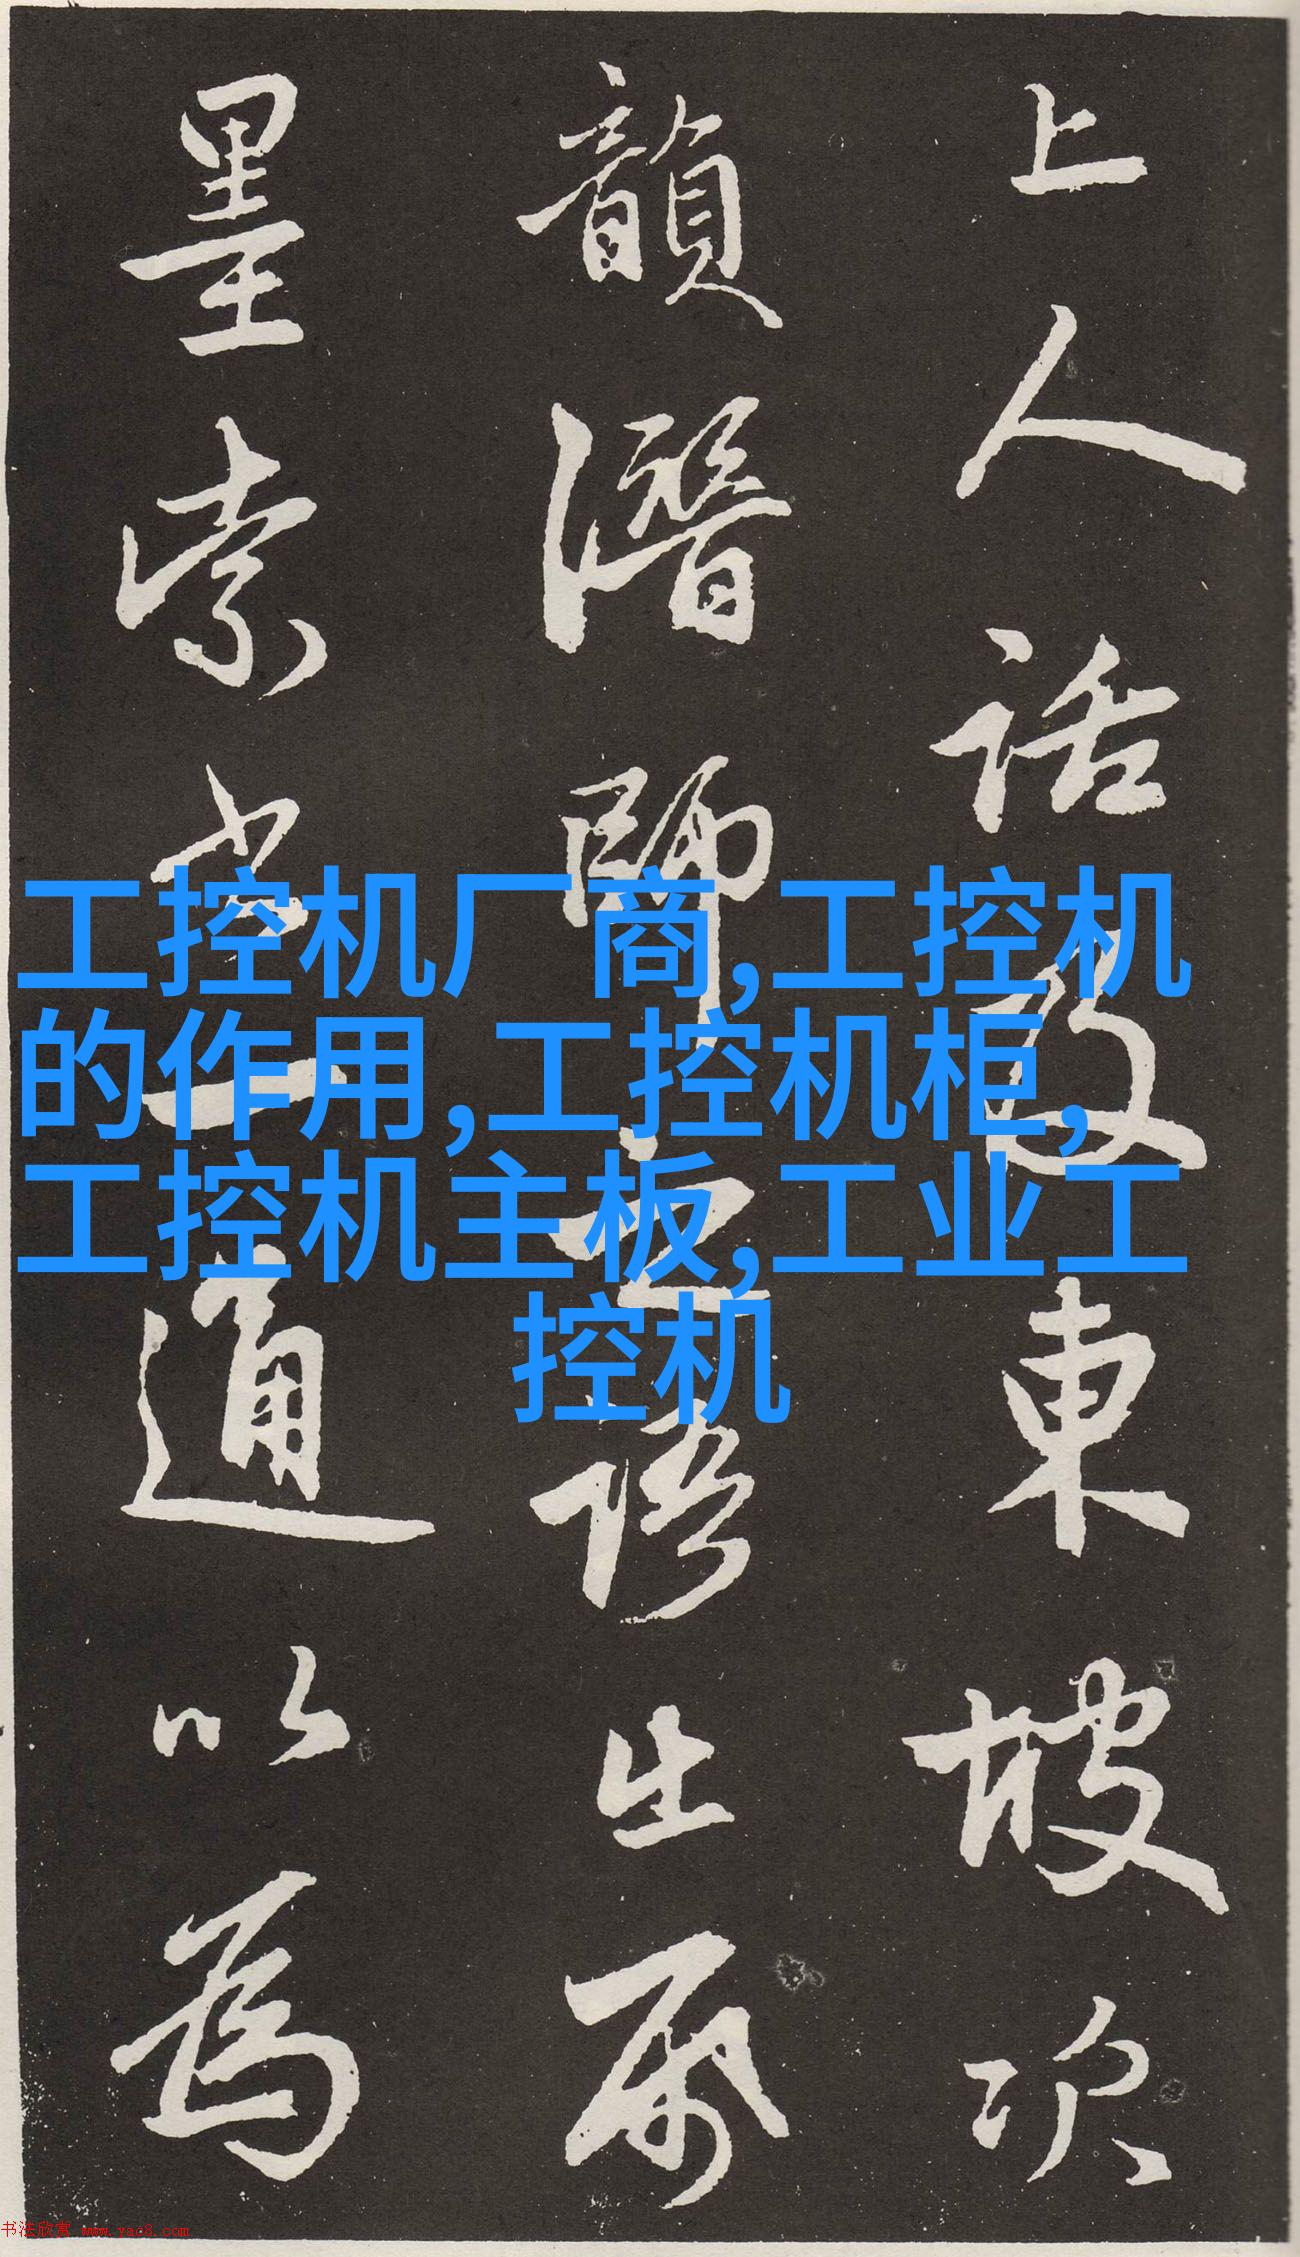 上人話及東坡次
韻潛師之語出帋
墨索書一通以為
工控机厂商,工控机
的作用,工控机柜,
工控机主板,工业工
控机
书法欣赏 www.yac8.com